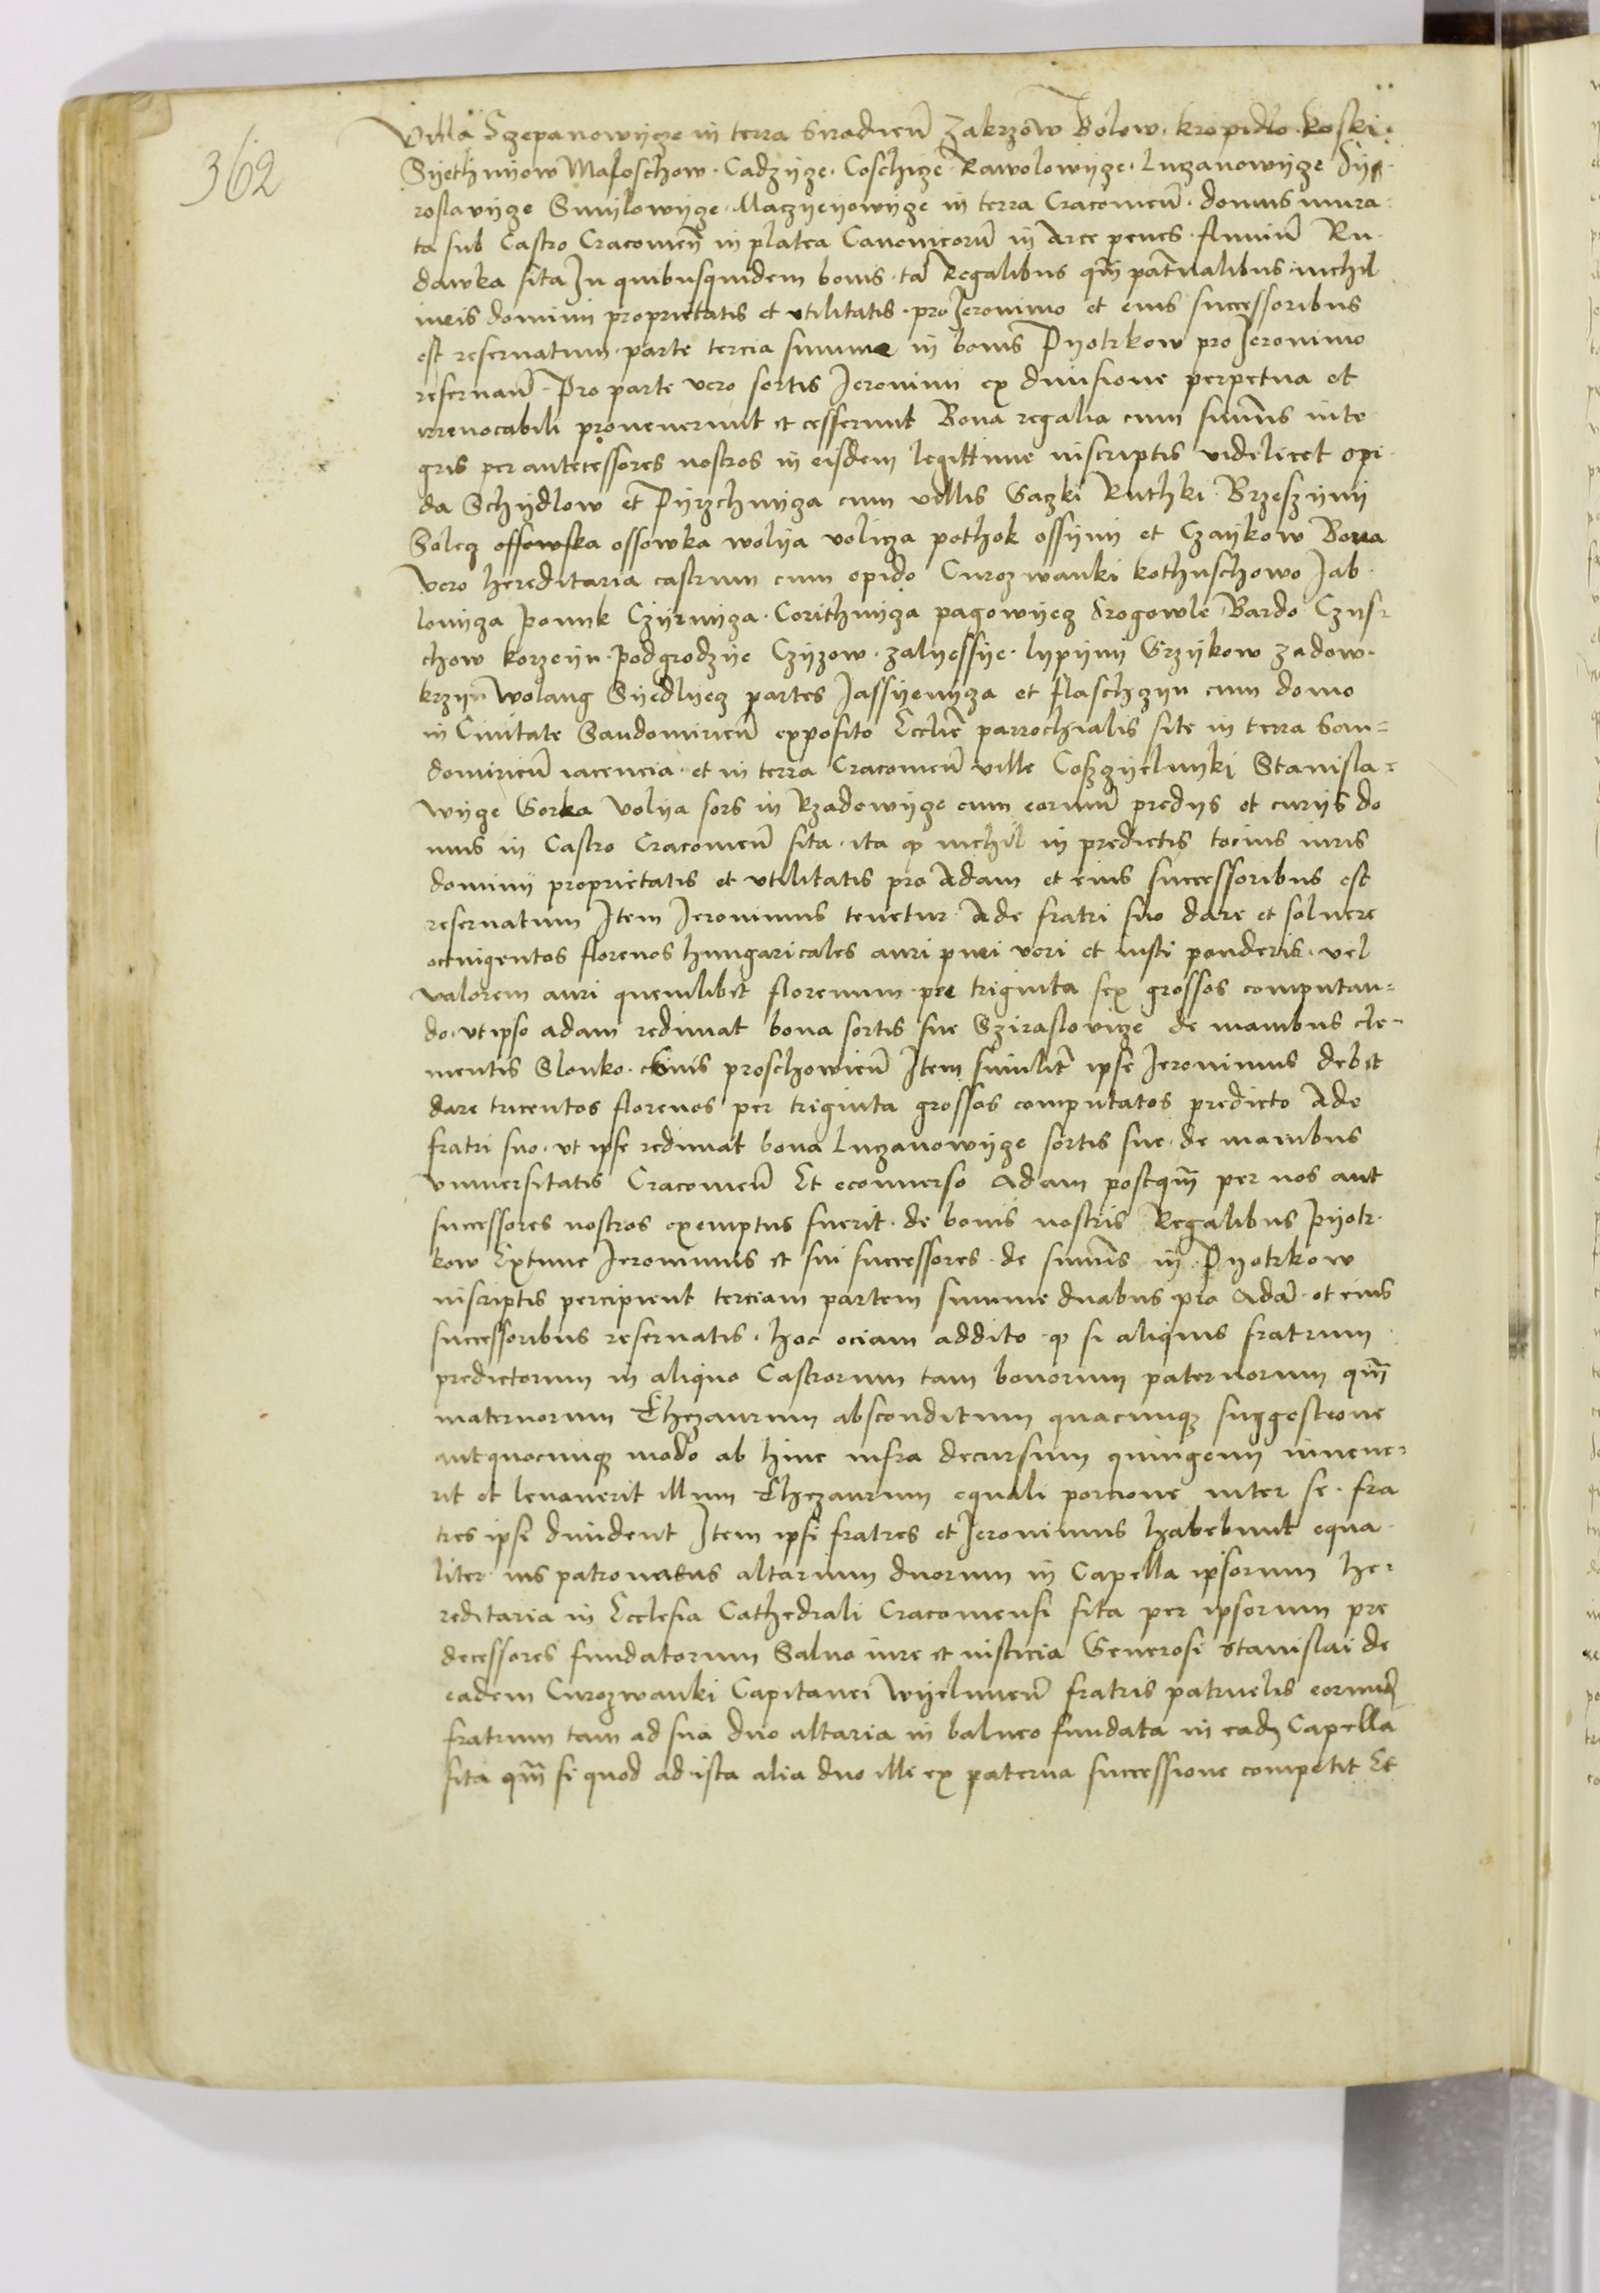 362
Villa Sczepanowycze in terra Siradien̄ Zakrzow Bolow. kropidlo. koski.
Syethnyow Maloschow. Cadzycze. Coschicze Rawolowycze. luczanowycze Sy
roslavycze Smylowycze. Maczyeyowycze in terra Cracouien̄. domus mura-
ta sub Castro Cracouien̄ in platea Canonicorū in Arce penes. fluuiū Ru-
dawka sita In quibusquidem bonis. tā Regalibus qm̄ pat̄rnalibus. nichil
iuris dominij proprietatis et vtilitatis. pro Jeronimo et eius successoribus
est reseruatum. parte tercia summe in bonis Pyotrkow pro Jeronimo
reseruan̄. Pro parte vero sortis Jeronimi ex diuisione perpetua et
irreuocabili prouenerunt et cesserunt Bona regalia cum summis inte
gris per antecessores nostros in eisdem legittime inscriptis videlicet opi-
da Schydlow et Pyrzchnycza cum villis Gaczki Ruthki. Brzeszyny
Solecz offowska ossowka wolya volicza pothok ossyny et Czaykow Bona
vero hereditaria castrum cum opido Curozwanki kothuschowo Jab-
lonycza ponyk Czyrnycza. Corithnycza pagowyecz Srogowle Bardo Czus-
chow korzeyn. podgrodzye Czyzow. zalyessye. lypyny Grzykow zadow-
krzyn̄ wolang Syedlyecz partes Jassyenycza et flaschczyn cum domo
in Ciuitate Sandomirien̄ exposito Eccl̄ie parrochialis site in terra San=
domirien̄ iacencia. et in terra Cracouien̄ ville Coszczyelnyki Stanisla=
wycze Gorka volya sors in Rzadowycze cum eorum̄ predijs et curijs do
mus in Castro Cracouien̄ sita. ita q̨ nichil in predictis tocius iuris
dominij proprietatis et vtilitatis pro Adam et eius successoribus est
reseruatum Item Jeronimus tenetur Ade fratri suo dare et soluere
octuigentos florenos hungaricales auri puri veri et iusti ponderis. vel
valorem auri quemlibet florenum. per triginta sex grossos computan=
do. vt ipse adam redimat bona sortis sue Sziraslovicze de manibus Cle-
mentis Slonko. Ciuis proschowien̄ Item similit̄ ipse Jeronimus debet
dare tricentos florenos per triginta grossos computatos predicto Ade
fratri suo. vt ipse redimat bona luczanowycze sortis sue. de manibus
vniuersitatis Cracouien̄ Et econuerso Adam postqm̄ per nos aut
successores nostros exemptus fuerit. de bonis nostris Regalibus pyotr-
kow Extunc Jeronimus et sui successores. de summis in. Pyotrkow
inscriptis percipient terciam partem summe duabus pro Adā. et eius
successoribus reseruatis. hoc eciam addito q̨ si aliquis fratrum
predictorum in aliquo Castrorum tam bonorum paternorum qm̄
maternorum Thezaurum absconditum quacunq̨ suggestione
aut quocunq̨ modo ab hinc infra decursum quingenij inuene-
rit et leuauerit illum Thezaurum equali porcione inter se. fra
tres ipsi diuident Item ipsi fratres et Jeronimus habebunt equa-
liter. ius patronatus altarium duorum in Capella ipsorum he-
reditaria in Ecclesia Cathedrali Cracouiensi sita per ipsorum pre
decessores fundatorum Saluo iure et iusticia Generosi Stanislai de
eadem Curozwanki Capitanei Wyelunen̄ fratris patruelis eorum̄
fratrum tam ad sua duo altaria in balneo fundata in eadē Capella
sita qm̄ si quod ad ista alia duo illi ex paterna successione competit Et